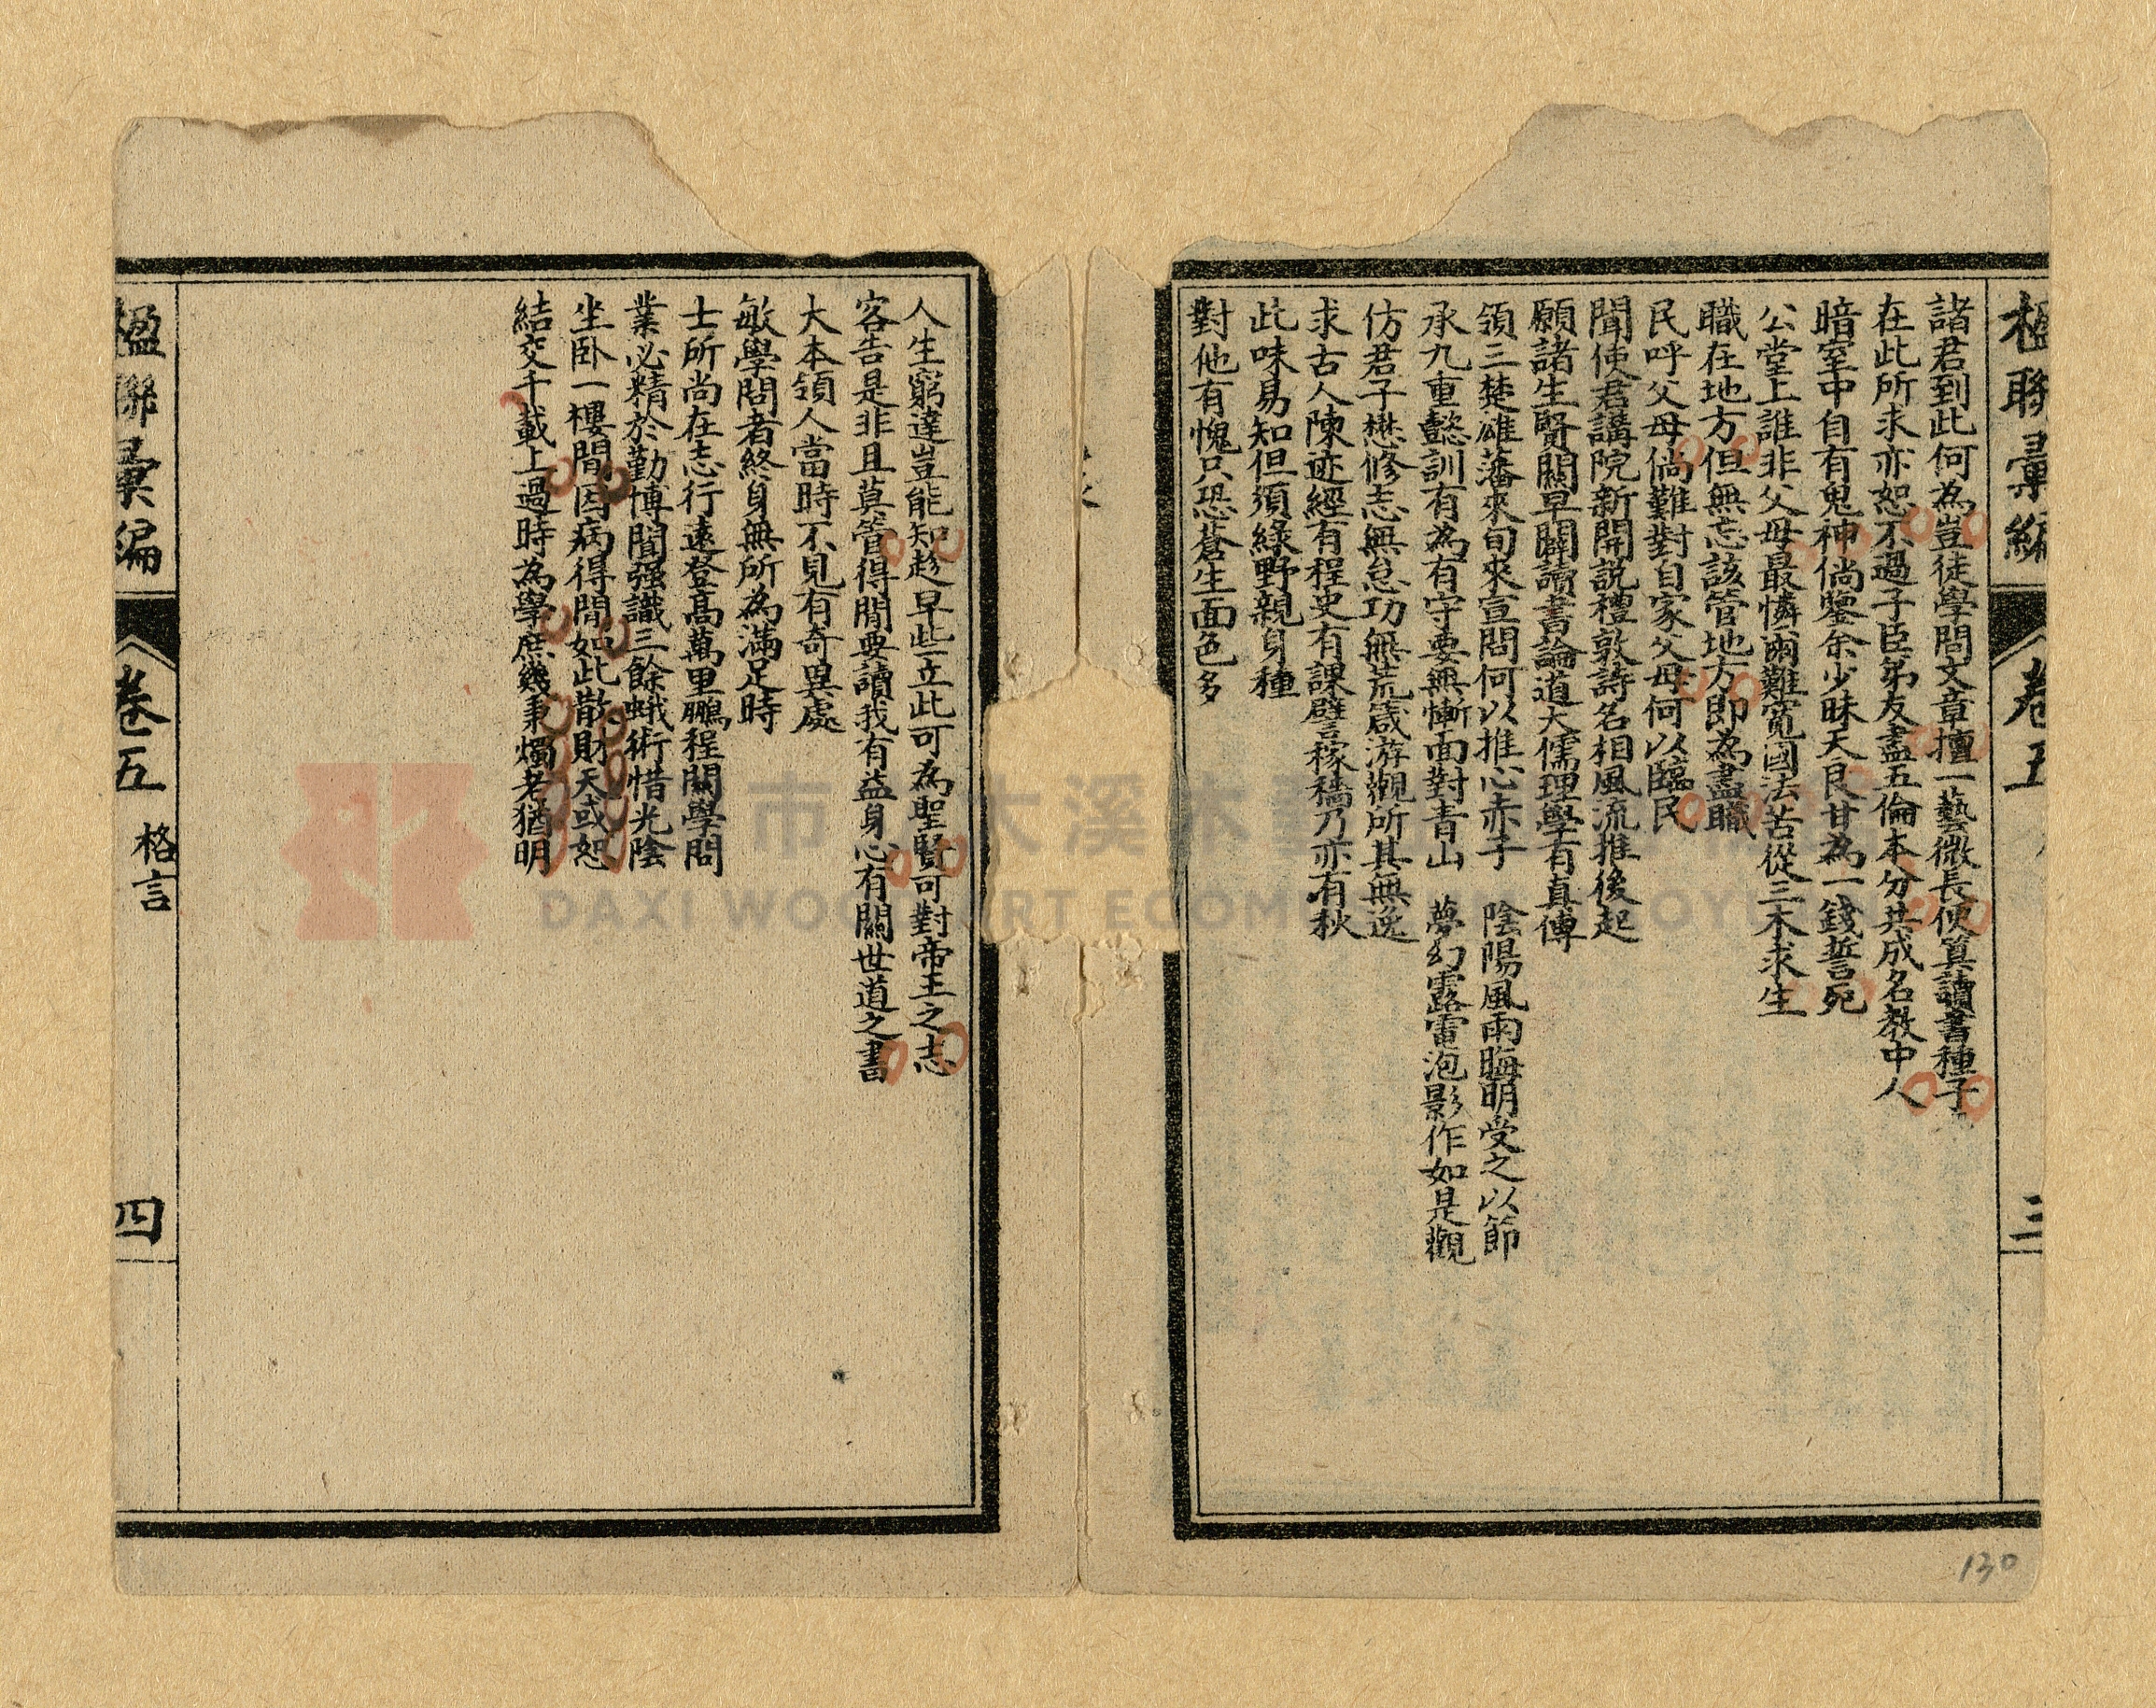 楹聯彙編
卷五
三
諸君到此何為豈徒學問文章擅一藝微長便算讀書種子
在此所求亦恕不過子臣弟友盡五倫本分共成名教中人
暗室中自有鬼神倘鑒余少昧天良甘為一錢誓死
公堂上誰非父母最憐爾難寬國法苦從三木求生
職在地方但無忘該管地方即為盡職
民呼父母倘難對自家父母何以臨民
聞使君講院新開說禮敦詩名相風流推後起
願諸生賢關早闢讀書論道大儒理學有真傳
領三楚雄藩來旬來宣問何以推心赤子 陰陽風雨晦明受之以節
承九重懿訓有為有守要無慚面對青山 夢幻露雷泡影作如是觀
仿君子懋修志無怠功無荒箴游觀所其無逸
求古人陳迹經有程史有課譬稼穡乃亦有秋
此味易知但須綠野親身種
對他有愧只恐蒼生面色多
人生窮達豈能知趁早些立此可為聖賢可對帝王之志
客告是非且莫管得閒要讀我有益身心有關世道之書
大本領人當時不見有奇異處
敏學問者終身無所為滿足時
士所尚在志行遠登高萬里鵬程關學問
業必精於勤博聞强識三餘蛾術惜光陰
坐卧一樓間因病得閒如此散財天或恕
結交千載上過時為學庶幾秉燭老猶明
楹聯彙編
卷五
格言
四
130
市
大溪木
DAXI WOOD ART ECOM